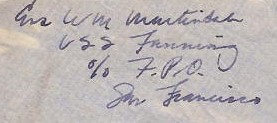 Ens W M Martindale
USS Fanning
c/o F.P.O.
San Francisco